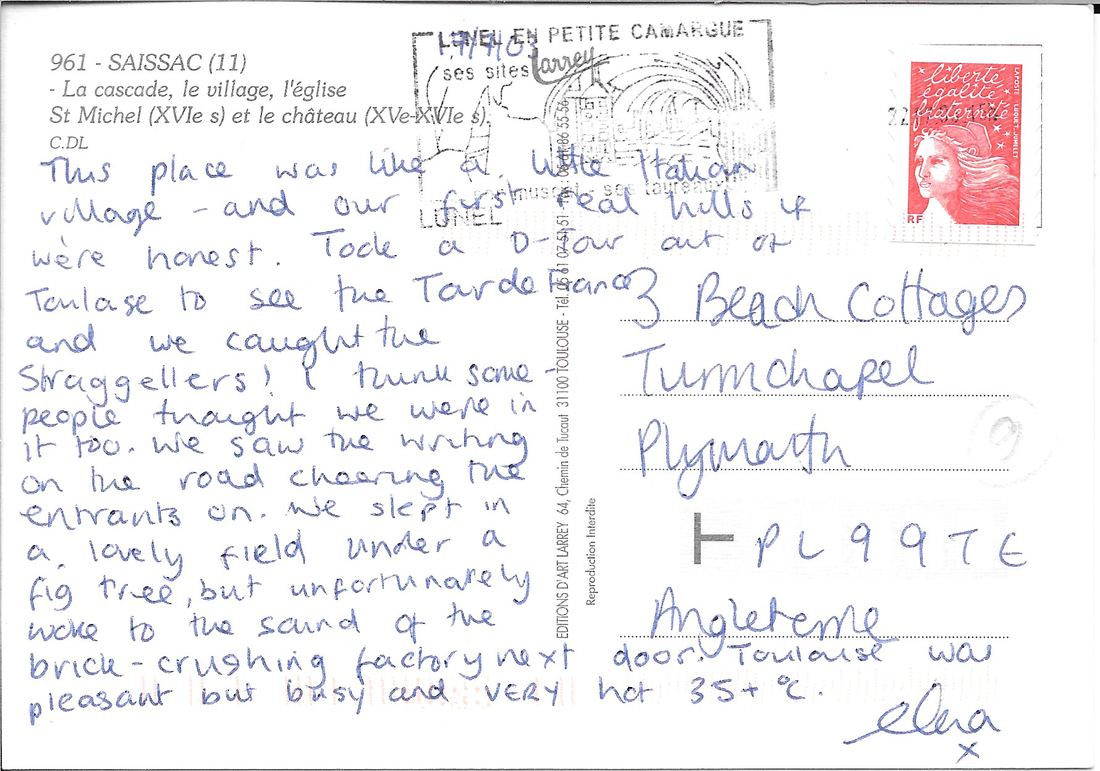 961 - SAISSAC (11)
- La cascade, le village, l'église
St Michel (XVIe s) et le château (XVe-XVIe s).
C.DL
17/7/03
LUNEL EN PETITE CAMARGUE
ses sites
Larrey
son muscat - ses taureaux
LUNEL
22
liberté
égalité
fraternité
LAPOSTE
LUQUET, JUMELET
RF
This place was like a little Italian
village - and our first real hills if
we're honest. Took a D-tour out of
Toulase to see the Tour de France
and we caught the
Straggellers! I think some-
people thought we were in
it too. We saw the writing
on the road cheering the
entrants on. We slept in
a lovely field under a
fig tree, but unfortunately
woke to the sound of the
brick-crushing factory next door. Toulouse was
pleasant but busy and VERY hot 35+°C.
elena
x
EDITIONS D'ART LARREY 64, Chemin de Tucaut 31100 TOULOUSE - Tél. 05 61 07 51 51
Reproduction Interdite
3 Beach Cottages
Turnchapel
Plymouth
PL9 9TE
Angleterre
9